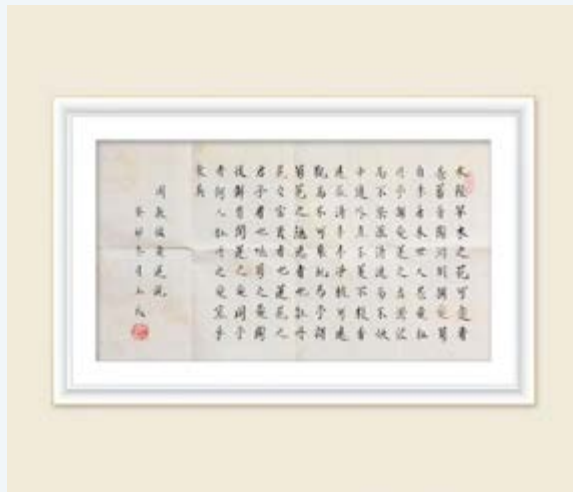 水陸草木之花可愛者
甚蕃晉陶淵明獨愛菊
自李唐來世人甚愛牡
丹予獨愛蓮之出淤泥
而不染濯清漣而不妖
中通外直不蔓不枝香
遠益清亭亭淨植可遠
觀而不可褻玩焉予謂
菊花之隱逸者也牡丹
花之富貴者也蓮花之
君子者也噫菊之愛陶
後鮮有聞蓮之愛同予
者何人牡丹之愛宜乎
衆矣
周敦頤愛蓮說
癸卯冬月